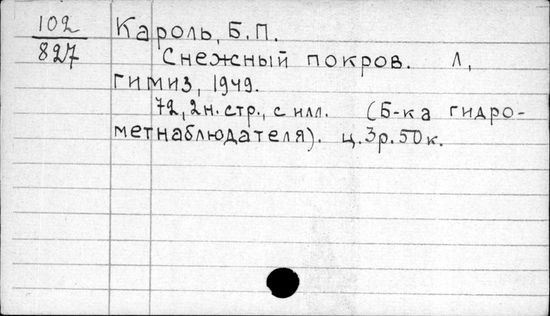 102 Кароль, Б.П.
827 Снежный покров. Л,
гимиз, 1949.
72, 2н. стр., с илл. (Б-ка гидро-
метнаблюдателя). ц. 3р. 50к.